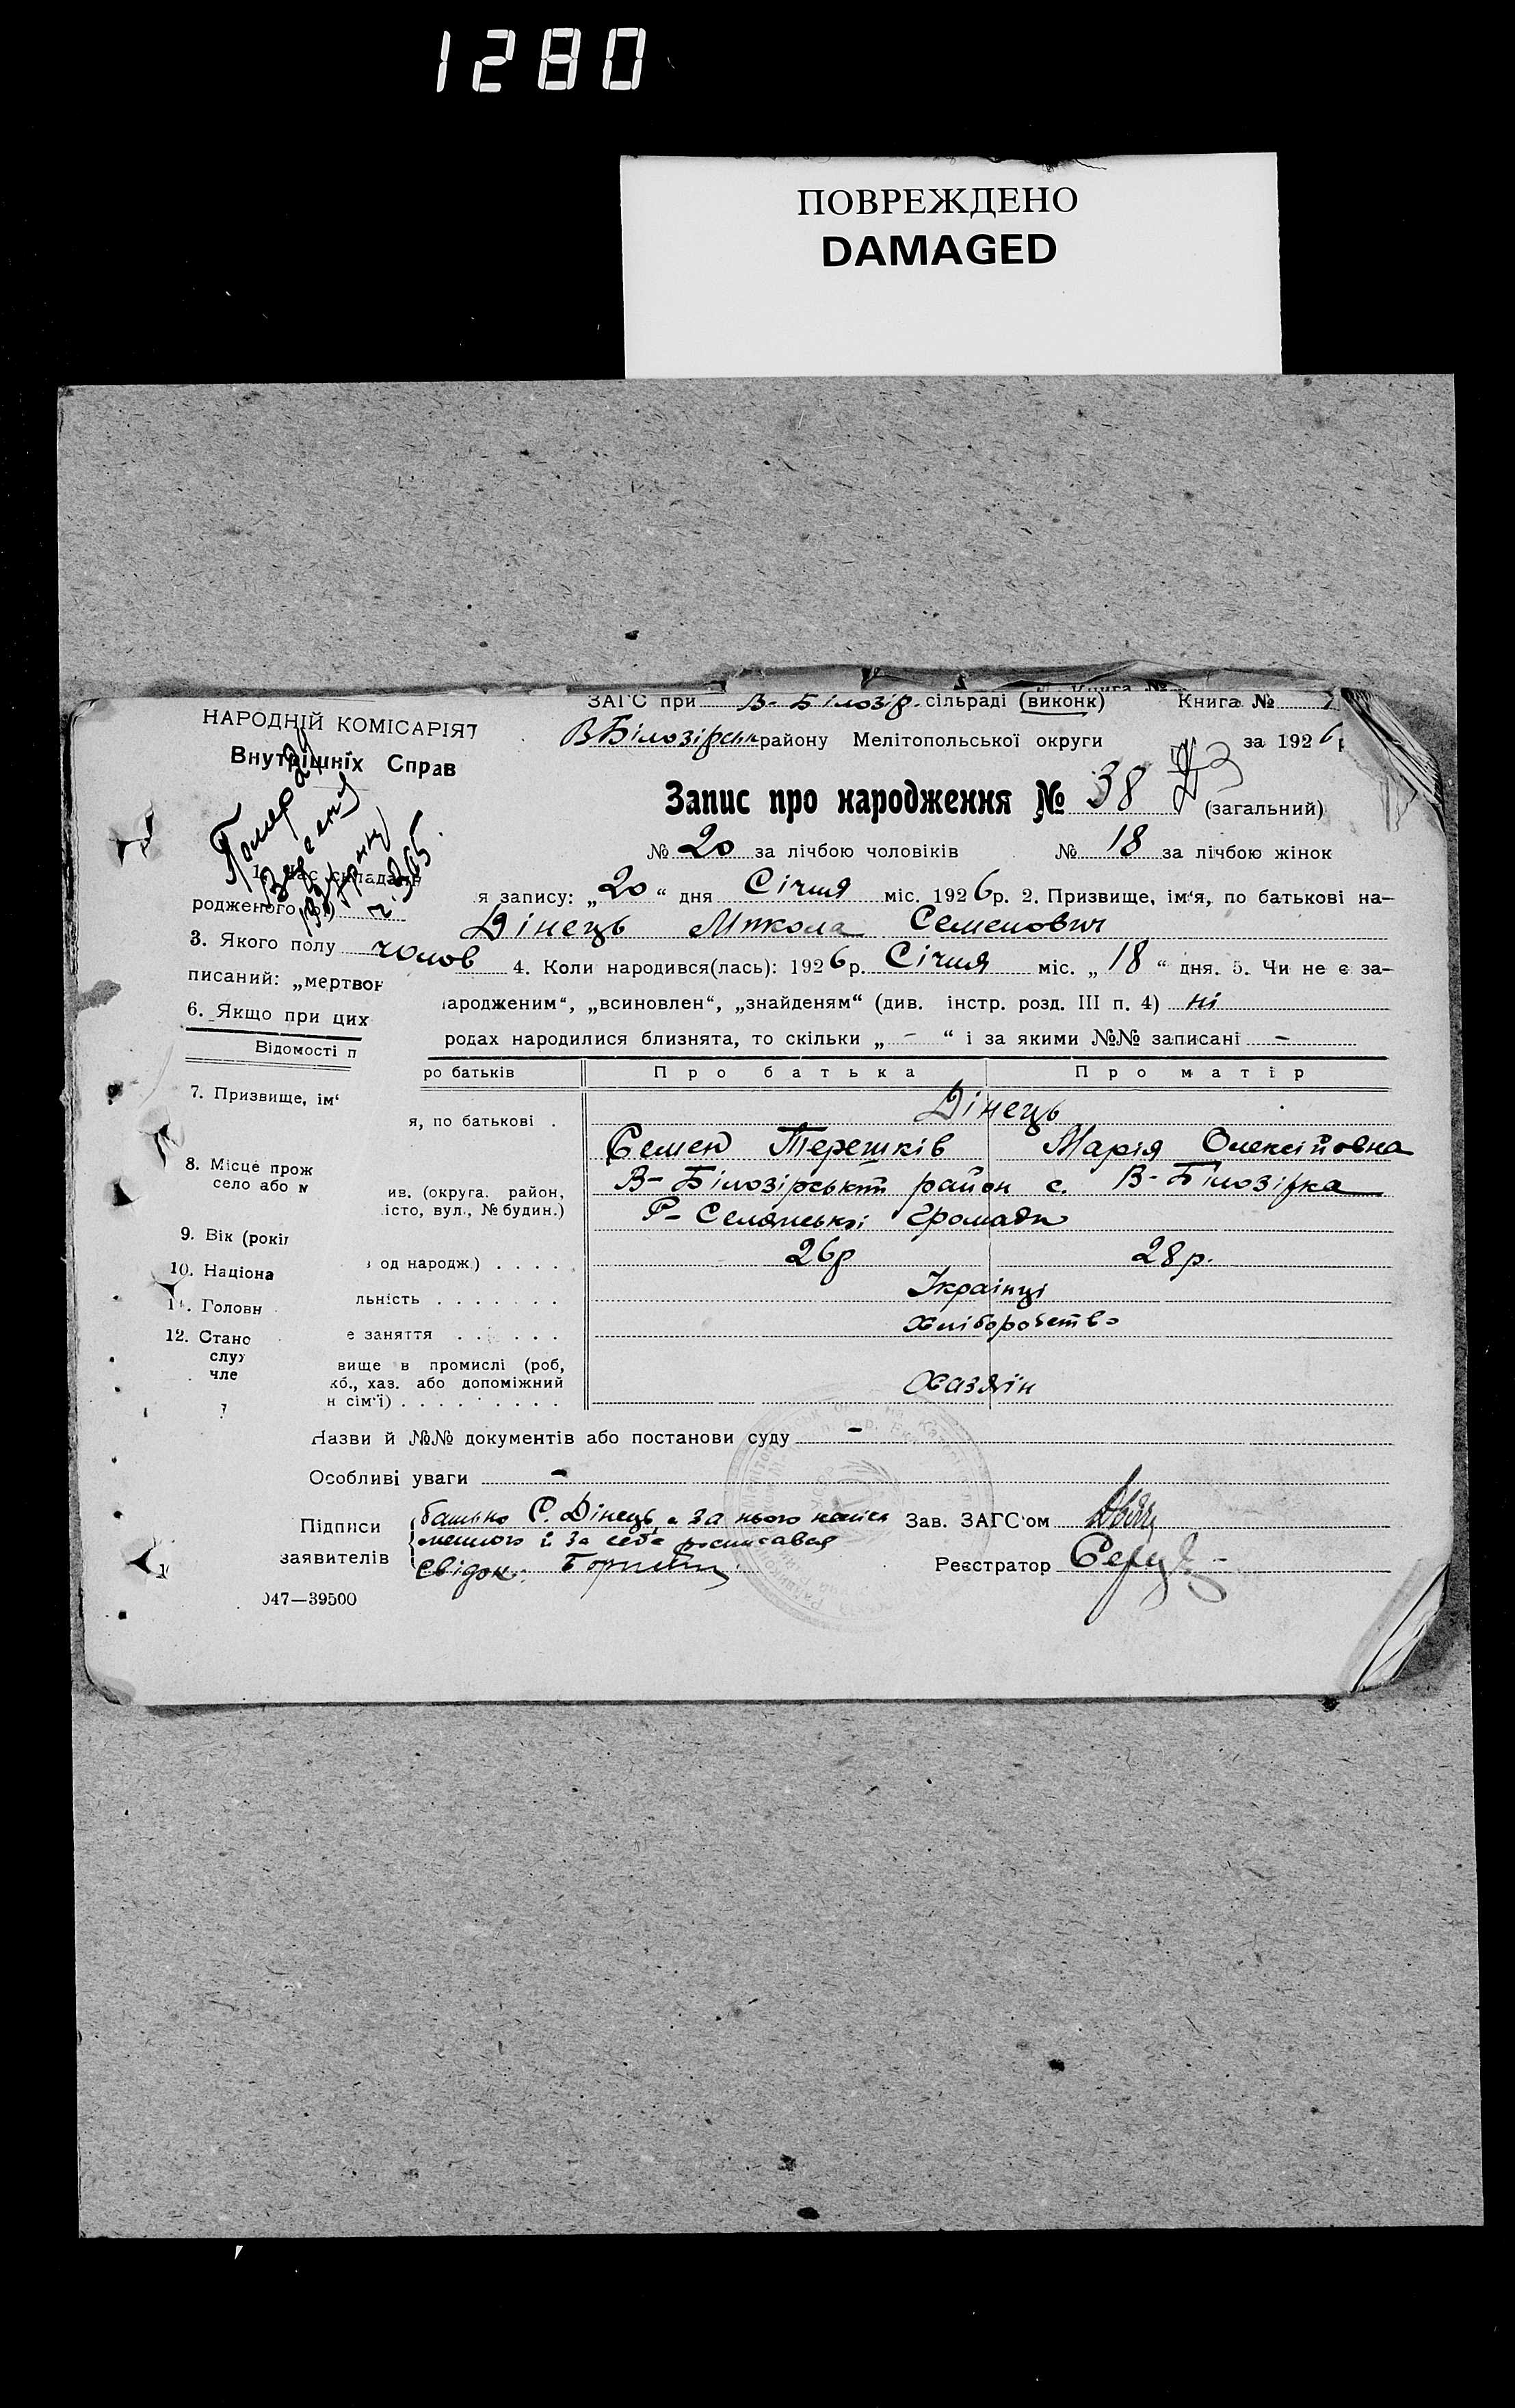 1280
ПОВРЕЖДЕНО
DAMAGED
ЗАГС при В-Білозір. сільраді (виконк) Книга №
НАРОДНІЙ КОМІСАРІЯТ
Внутрішніх Справ
ВБілозірськ району Мелітопольської округи за 1926 р
Запис про народження № 38 (загальний)
№ 20 за лічбою чоловіків № 18 за лічбою жінок
1. Час складанн я запису: „20“ дня Січня міс. 1926р. 2. Призвище, ім‘я, по батькові на–
родженого Дінець Микола Семенович
3. Якого полу чолов 4. Коли народився(лась): 1926р. Січня міс. „18“ дня. 5. Чи не є за–
писаний: „мертвон ародженим“, „всиновлен“, „знайденям“ (див. інстр. розд. III п. 4) ні
6. Якщо при цих родах народилися близнята, то скільки „ - “ і за якими №№ записані -
Відомості п ро батьків Про батька Про матір
7. Призвище, ім‘ я, по батькові . Дінець
Семен Терешків Марія Олексійовна
8. Місце прож ив. (округа. район, В-Білозірський район с. В-Білозірка
село або м істо, вул., № будин.) Р-Селянської громади
9. Вік (рокі од народж.) . . . . 26р 28р.
10. Націона льність . . . . . . . Українці
11. Головн е заняття . . . . . . хліборобство
12. Стано вище в промислі (роб,
служ кб., хаз. або допоміжний
чле н сім‘ї) . . . . . . . . . Хазяїн
Назви й №№ документів або постанови суду -
Особливі уваги -
Підписи батько С. Дінець а за нього Зав. ЗАГС‘ом
заявителів і за себе росписався
свідок: Реєстратор
047—39500